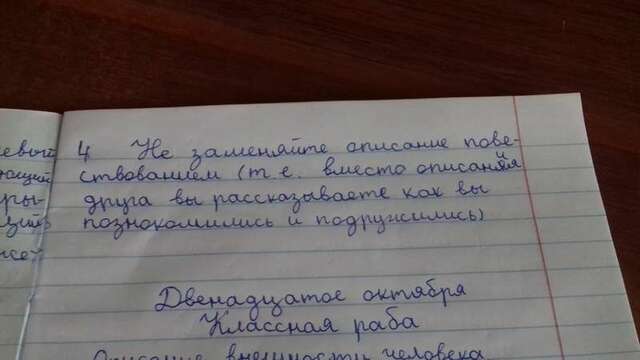 4 Не заменяйте описание пове-
ствованием (т.е. вместо описания
друга вы рассказываете как вы
познокомились и подружились)
Двенадцатое октября
Классная раба
Описание внешности человека